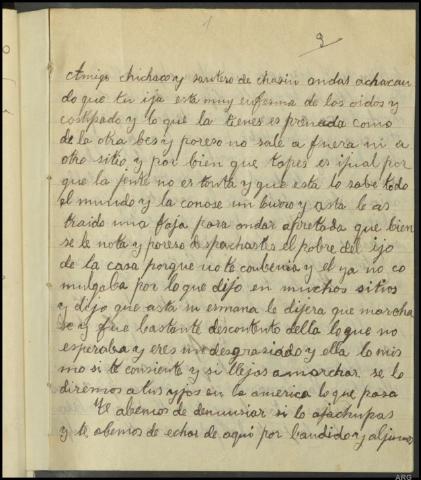 1
3
Amigo chichaco y santero de chasin andas achacan
do que tu ija esta muy enferma de los oidos y
costipado y lo que la tienes es prenada como
de la otra bes y poreso no sale a fuera ni a
otro sitio y por bien que tapes es ijual por
que la jente no es tonta y que esta lo sabe todo
el mundo y la conose un burro y asta le as
traido una faja para andar apretada que bien
se le nota y poreso despachastes el pobre del ijo
de la casa porque no te conbenia y el ya no co
mulgaba por lo que dijo en muchos sitios
y dijo que asta su ermana le dijera que marcha
se y fue bastante descontento della lo que no
esperaba y eres un desgrasiado y ella lo mis
mo si te consiente y si llejas a marchar se lo
diremos a tus yjos en la america lo que pasa
Te abemos de denunsiar si lo apachupas
y te abemos de echar de aqui por bandido y aljunos
ARG